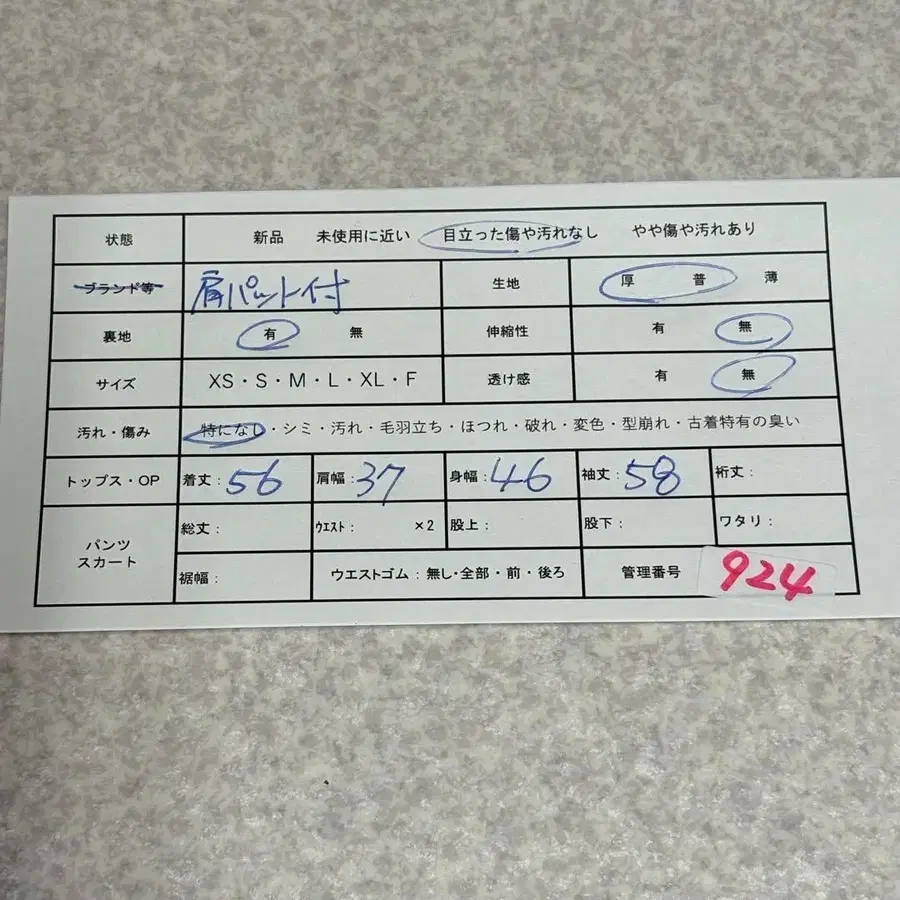 状態 新品 未使用に近い 目立った傷や汚れなし やや傷や汚れあり
ブランド等 肩パット付 生地 厚 普 薄
裏地 有 無 伸縮性 有 無
サイズ XS・S・M・L・XL・F 透け感 有 無
汚れ・傷み 特になし・シミ・汚れ・毛羽立ち・ほつれ・破れ・変色・型崩れ・古着特有の臭い
トップス・OP 着丈:56 肩幅:37 身幅:46 袖丈:58 裄丈:
パンツ スカート 総丈: ウエスト: ×2 股上: 股下: ワタリ:
裾幅: ウエストゴム:無し・全部・前・後ろ 管理番号 924